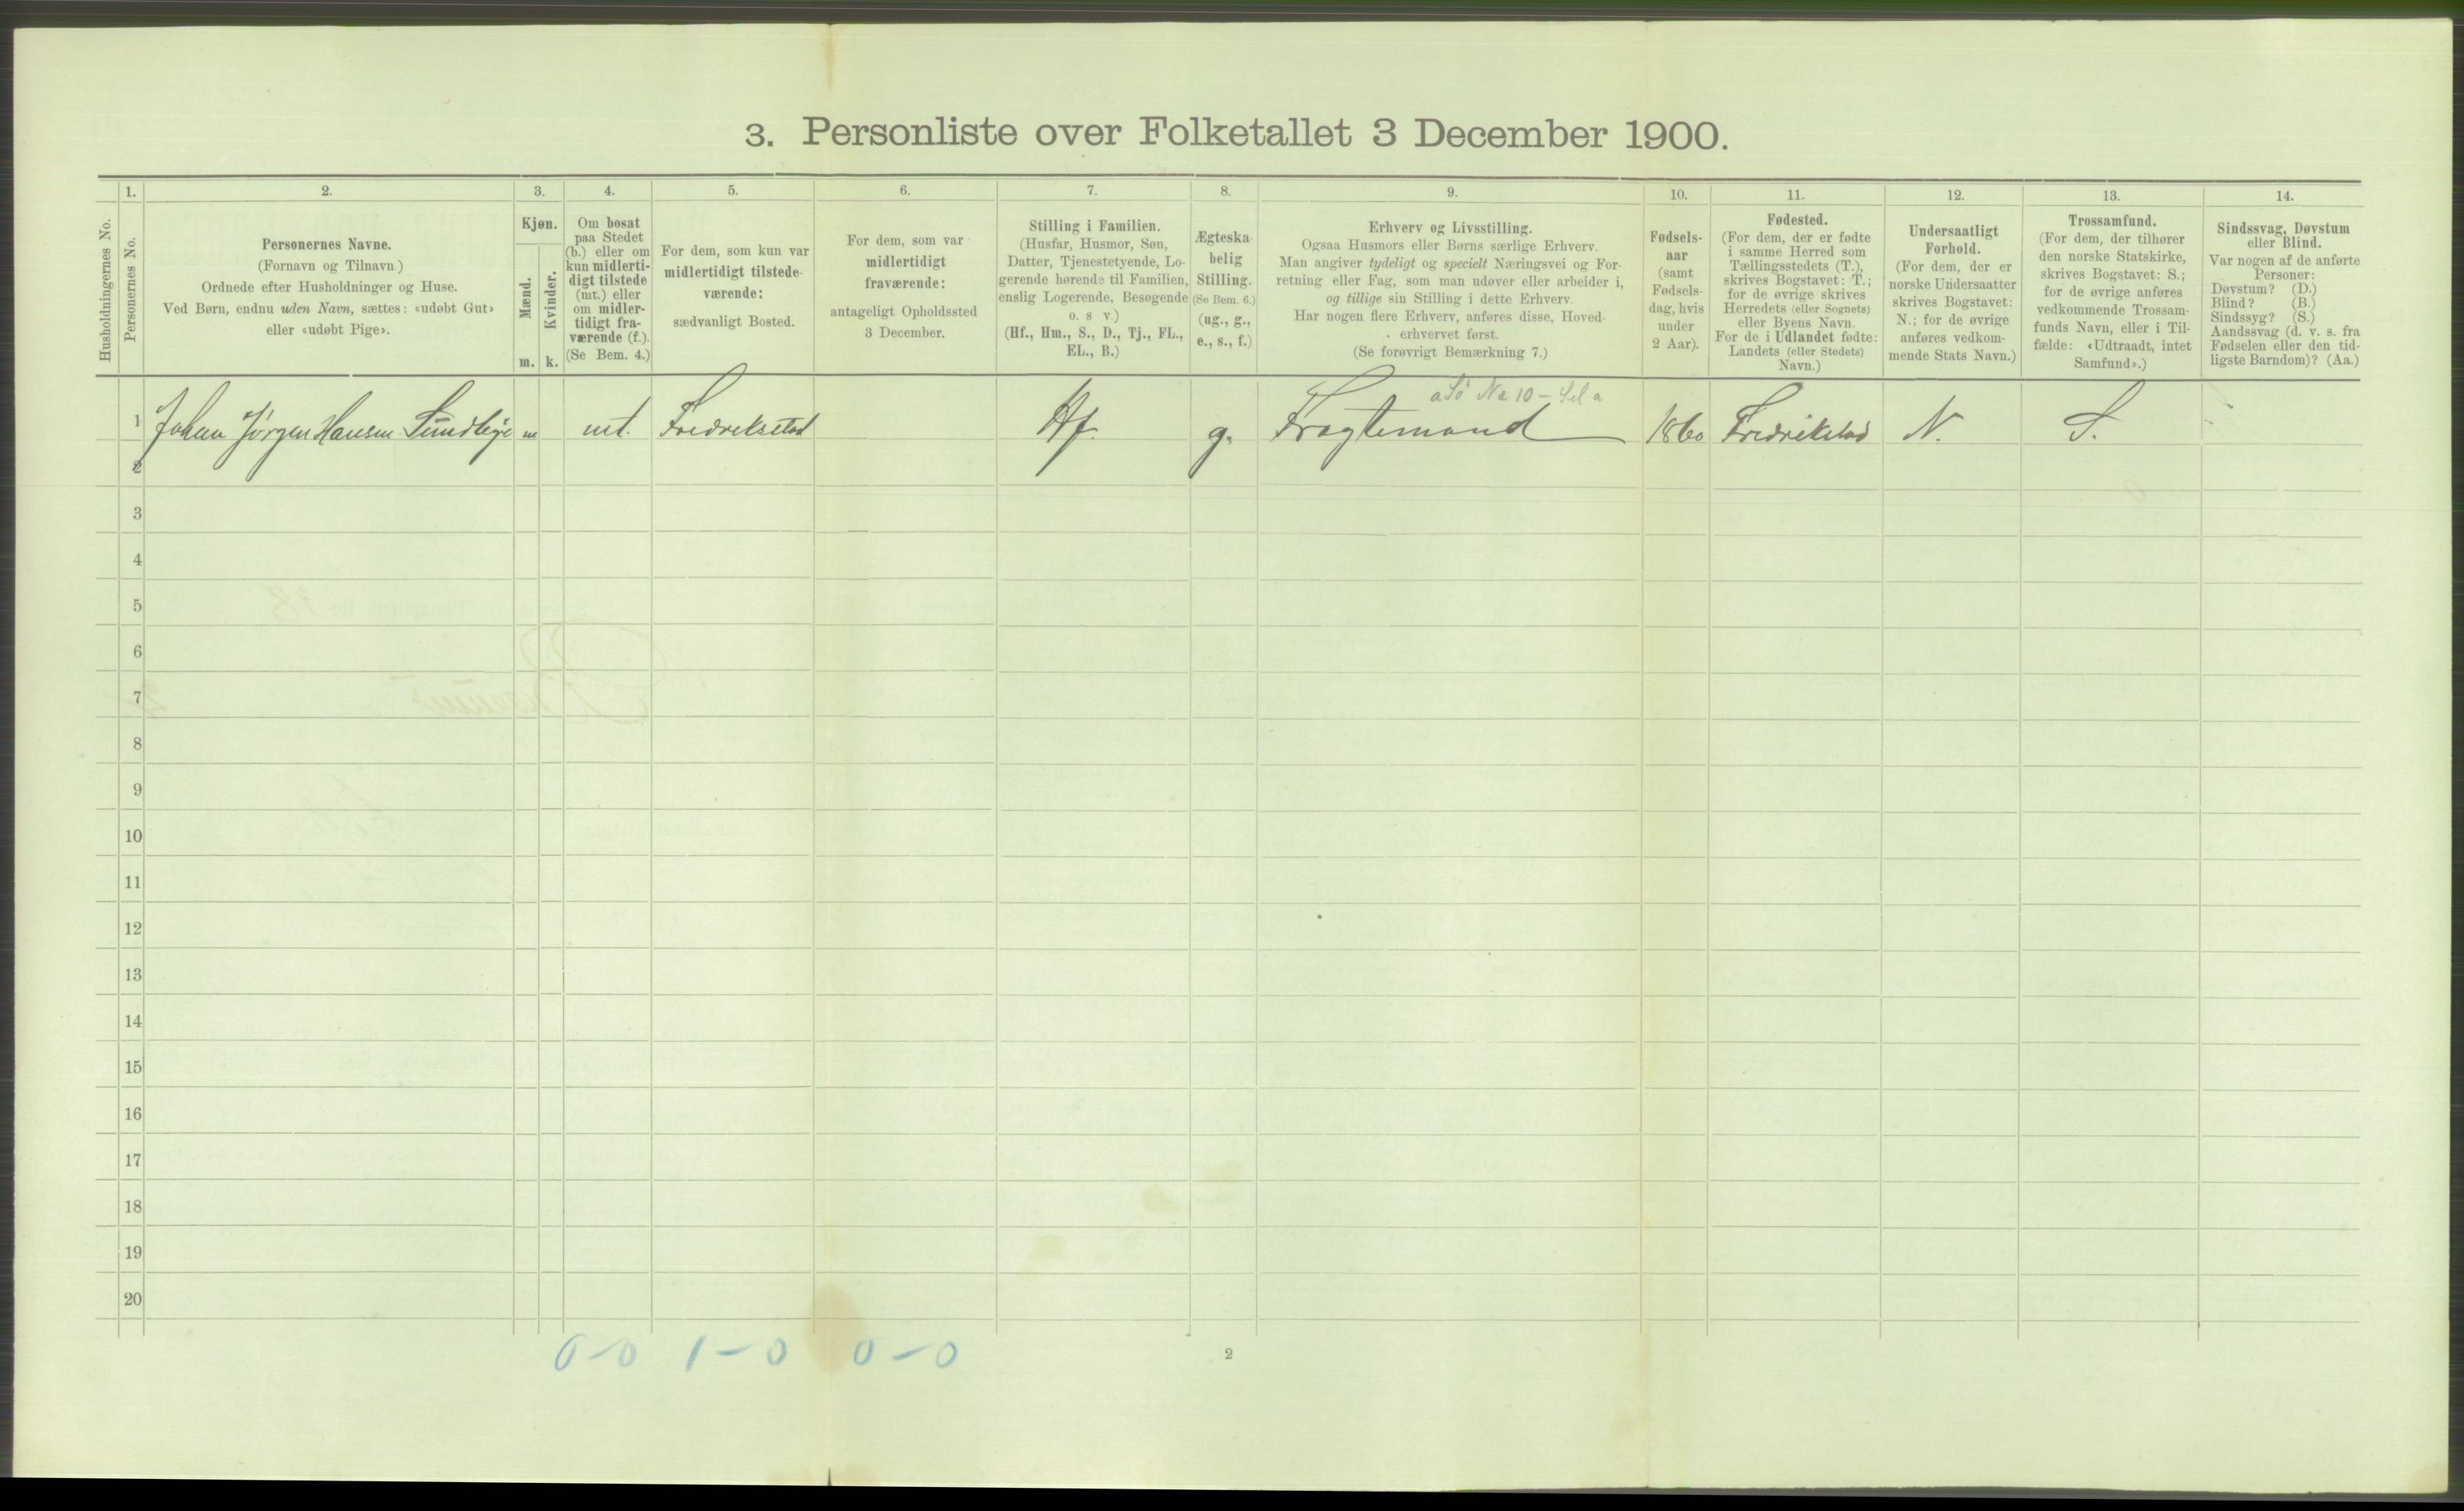 3. Personliste over Folketallet 3 December 1900.
Husholdningernes No.
1.
Personernes No.
2.
Personernes Navne.
(Fornavn og Tilnavn)
Ordnede efter Husholdninger og Huse.
Ved Børn, endnu uden Navn, sættes: «udøbt Gut»
eller «udøbt Pige».
3.
Kjøn.
Mænd.
Kvinder.
m.
k.
4.
Om bosat
paa Stedet
(b.) eller om
kun midlerti-
digt tilstede
(mt.) eller
om midler-
tidigt fra-
værende (f.).
(Se Bem. 4.)
5.
For dem, som kun var
midlertidigt tilstede-
værende:
sædvanligt Bosted.
6.
For dem, som var
midlertidigt
fraværende:
antageligt Opholdssted
3 December.
7.
Stilling i Familien.
(Husfar, Husmor, Søn,
Datter, Tjenestetyende, Lo-
gerende hørende til Familien,
enslig Logerende, Besøgende
o. s v.)
(Hf., Hm., S., D., Tj., FL.,
EL., B.)
8.
Ægteska-
belig
Stilling.
(Se Bem. 6.)
(ug., g.,
e., s., f.)
9.
Erhverv og Livsstilling.
Ogsaa Husmors eller Børns særlige Erhverv.
Man angiver tydeligt og specielt Næringsvei og For-
retning eller Fag, som man udøver eller arbeider i,
og tillige sin Stilling i dette Erhverv.
Har nogen flere Erhverv, anføres disse, Hoved-
erhvervet først.
(Se forøvrigt Bemærkning 7.)
10.
Fødsels-
aar
(samt
Fødsels-
dag, hvis
under
2 Aar).
11.
Fødested.
(For dem, der er fødte
i samme Herred som
Tællingsstedets (T.),
skrives Bogstavet: T.;
for de øvrige skrives
Herredets (eller Sognets)
eller Byens Navn.
For de i Udlandet fødte:
Landets (eller Stedets)
Navn.)
12.
Undersaatligt
Forhold.
(For dem, der er
norske Undersaatter
skrives Bogstavet:
N.; for de øvrige
anføres vedkom-
mende Stats Navn.)
13.
Trossamfund.
(For dem, der tilhører
den norske Statskirke,
skrives Bogstavet: S.;
for de øvrige anføres
vedkommende Trossam-
funds Navn, eller i Til-
fælde: «Udtraadt, intet
Samfund».)
14.
Sindssvag, Døvstum
eller Blind.
Var nogen af de anførte
Personer:
Døvstum? (D.)
Blind? (B.)
Sindssyg? (S.)
Aandssvag (d. v. s. fra
Fødselen eller den tid-
ligste Barndom)? (Aa.)
1 Johan Jørgen Hansen m mt. Fredrekstad Hf. g. Fragtemand 1860 Fredrikstad N. S.
2
3
4
5
6
7
8
9
10
11
12
13
14
15
16
17
18
19
20
0-0 1-0 0-0
2